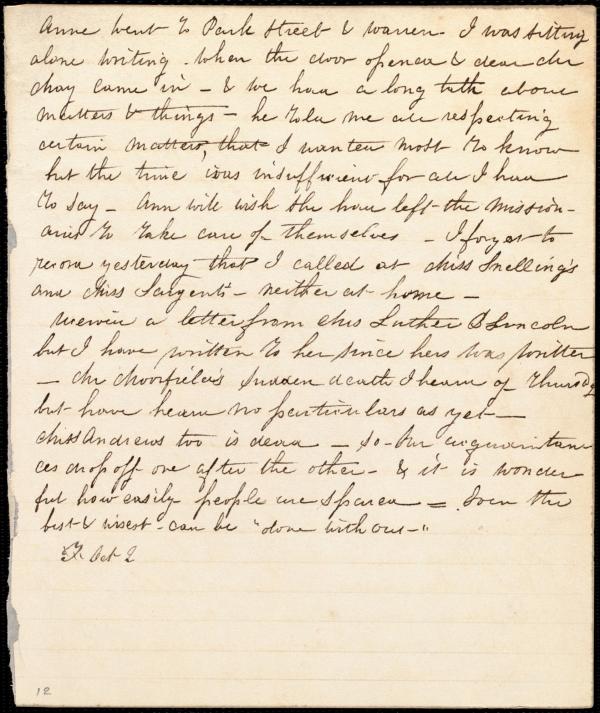 Anne went to Park Street & Warren - I was sitting
alone writing - when the door opened & dear Mr
May came in - & we had a long talk about
matters & things - he told me all respecting
certain matters, that I wanted most to know
but the time was insufficient for all I had
to say - Ann will wish she had left the mission-
aries to take care of themselves - I forgot to
record yesterday that I called at Miss Snelling's
and Miss Sargent's - neither at home -
a letter from Mrs Luther Lincoln
but I have written to her since hers was written
- Mr sudden death I heard of Thursdy
but have heard no particulars as yet -
Miss Andrews too is dead - So our acquaintan
ces drop off one after the other - & it is wonder
ful how easily people are spared = Even the
best & wisest - can be "done without -"
Oct 2
12